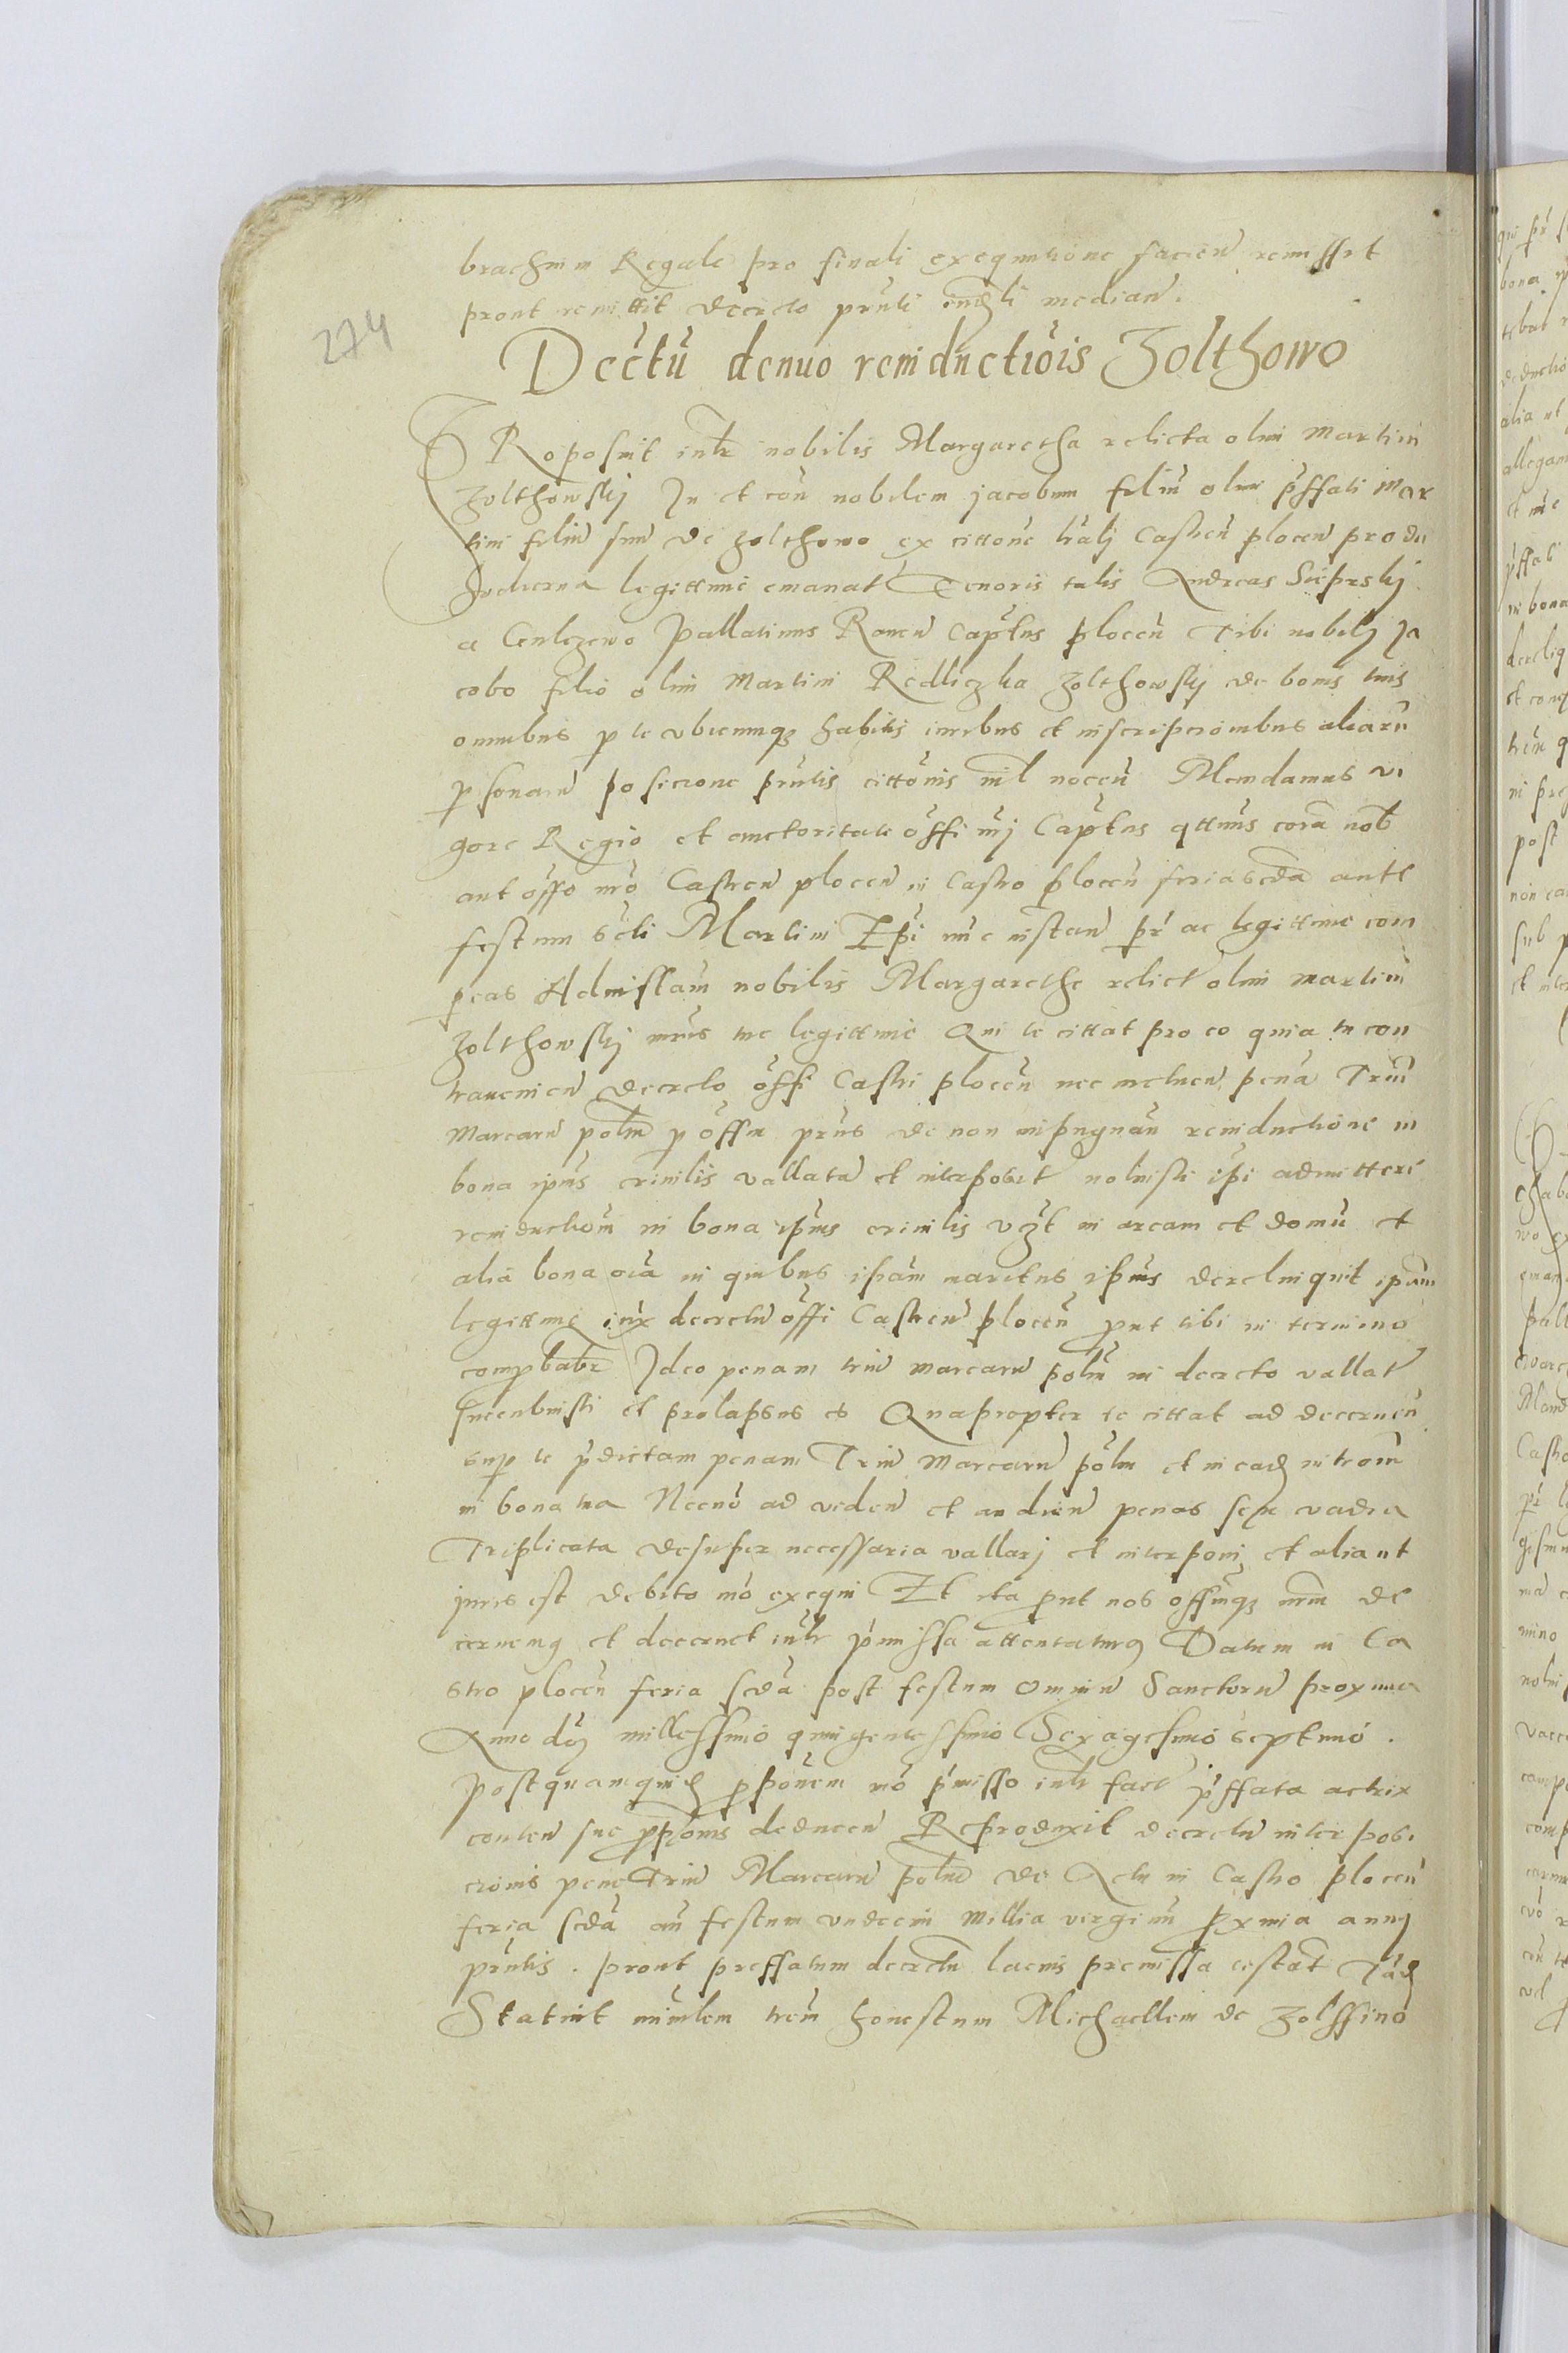 brachium Regale pro finali exequutione facien remissit
prout remittit decreto prnti median.
274
Decrtu denuo reinductiois Zolthowo
PRoposuit intr nobilis Margaretha relicta olim Martini
Zolthowskj In et con nobilem jacobum filiu olim pffati Mar
tini filiu suu de Zolthowo ex cittone lralj Castren plocen pro die
hodierna legittime emanat Tenoris talis Andreas Sieprskj
a Pallatinus Raven Captus plocen Tibi nobilj Ja
cobo filio olim Martini Redliczka Zolthowskj de bonis tuis
omnibus p te vbicumqz habitis iuribus et inscripcionibus aliaru
psonaru posicione prntis cittonis nil nocen Mandamus vi
gore Regio et auctoritate offi nrj Captus qttnus cora nob
aut offo nro Castren plocen in Castro plocen feria scda ante
festum scti Martini Epi nuc instan pr ac legittime com
peas Ad instam nobilis Margarethe relict olim Martini
Zolthowskj mris tue legittime Qui te cittat pro eo quia tu con
travenien decreto offi Castri plocen nec metuen pena Triu
Marcaru polm p offm prius de non inpugnan reinductione in
bona ipius crinilis vallata et interposit noluisti ipi admittere
reinductiom in bona ipius crinilis vzt in aream et domu et
alia bona oia in quibus ipam maritus ipius dereliquit ipam
legittime iux decretu offi Castren plocen put tibi in termino
compbabr Ideo penam triu marcaru polm in decreto vallat
Incubuisti et prolapsus es Quapropter te cittat ad decernen
sup te pdictam penam Triu Marcaru polm et in ead introm
in bona tua Necno ad viden et audien penas seu vadia
Triplicata desuper necessaria vallarj et interponi et alia ut
juris est debito mo exequi Et ita put nos offmqz nrm de
cernemq et decernet intr pmissa attentaturq Datum in Ca
stro plocen feria scda post festum Omniu Sanctoru proxima
Anno dnj millessimo quingentessimo Sexagesimo septimo.
postquamquid pponem mo pmisso intr fact pffata actrix
conten sue pponis deducen Reproduxit decretu interposi
cionis pene Triu Marcaru polm de Actu in Castro plocen
feria scda an festum vndecim Millia virginu pxima annj
prntis. prout preffatum decretu lacius premissa testat Tad
Statuit mimlem trem honestum Michaellem de Zolssino